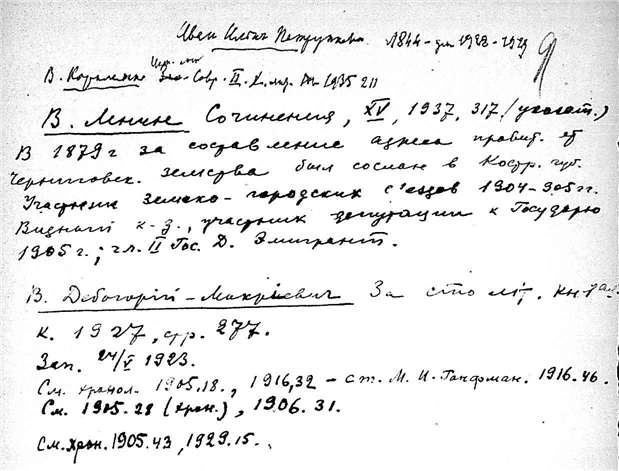 Иван Ильич Петрункевич. 1844 – ум 1928 - 1929
9
В. Короленко Изд. II. X. стр. М 1935 211
В. Ленин Сочинения, XV, 1937, 317 (указат.)
В 1879 г за составление адреса правит. от
Черниговск. земства был сослан в Костр. губ.
Участник земско-городских с'ездов 1904-905 гг.
Видный к-д., участник депутации к Государю
1905 г.; чл. II Гос. Д. Эмигрант.
В. Дебогорій-Мокріевич За сто літ. кн.
К. 1927, стр. 277.
Зап. 24/V 1923.
См. хронол. 1905.18., 1916,32 – ст. М. И. Ганфман. 1916.46.
См. 1905.28 (хрон.), 1906.31.
См. хрон. 1905.43, 1929.15.